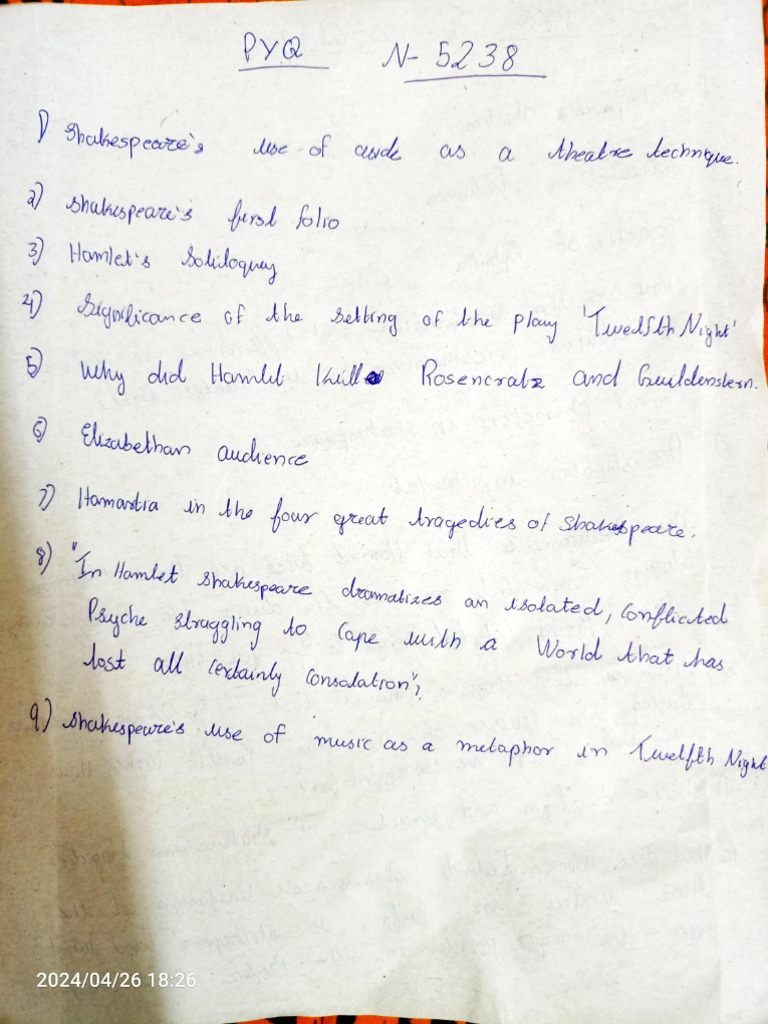 PYQ N- 5238
1) Shakespeare's use of aside as a theatre technique.
2) Shakespeare's first folio
3) Hamlet's Soliloquy
4) Significance of the setting of the play 'Twelfth Night'
5) Why did Hamlet kill Rosencratz and Guildenstern.
6) Elizabethan audience
7) Hamartia in the four great tragedies of Shakespeare.
8) "In Hamlet Shakespeare dramatizes an isolated, conflicted
Psyche straggling to Cape with a World that has
lost all certainly Consolation",
9) Shakespeare's use of music as a metaphor in Twelfth Night
2024/04/26 18:26